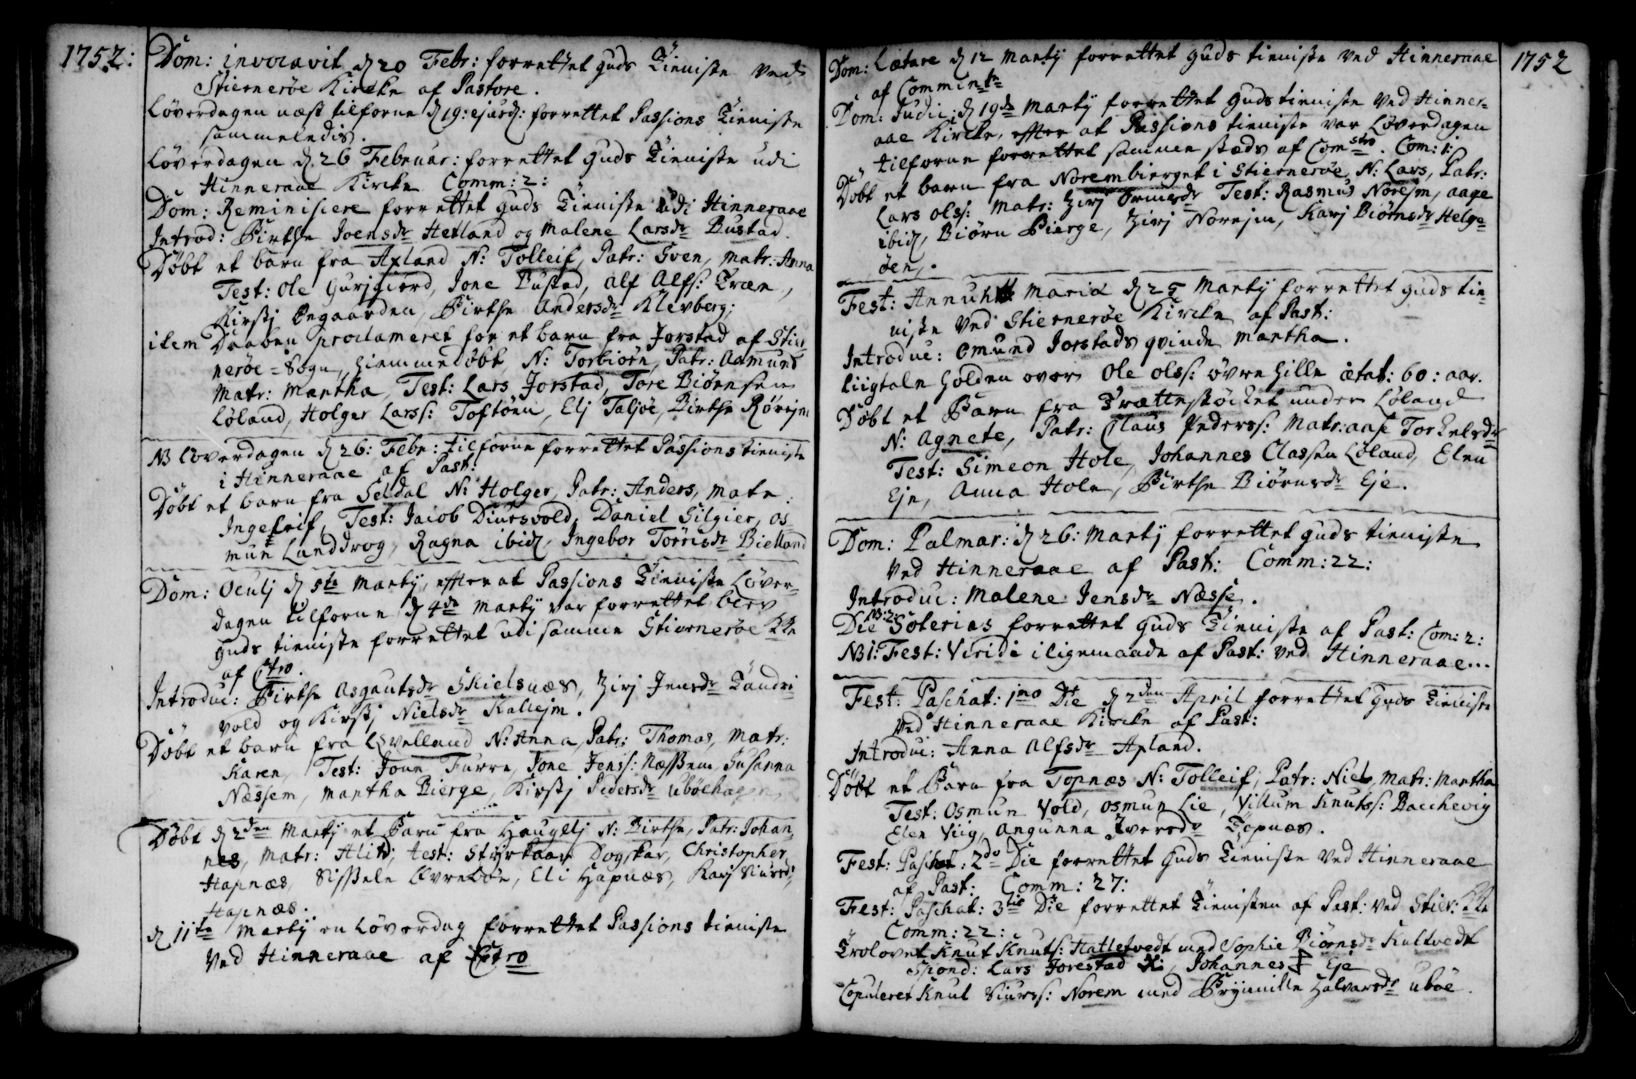 1752:
Dom: invocavit d 20 Febr: forrettet Guds Tieniste ved
Stiernerøe Kircke af Pastore.
Løverdagen næst tilforne d 19: ejusd: forrettet Passions Tieniste
sammeledis.
Løverdagen d 26 Februar: forrettet Guds Tieniste udi
Hinneraae Kircke Comm: 2:
Dom: Reminiscere forrettet Guds Tieniste udi Hinneraae
Introd: Birthe Joensdr Hetland og Malene Larsdr Bustad.
Døbt et barn fra Apland N: Tolleif, Patr: Sven, Matr: Anna
Test: Ole Gursgiord, Jone Bustad, Alf Alfs: Træn,
Kirstj Øngaarden, Birthe Andersdr Klevberg;
item Daaben proclameret for et barn fra Jorstad af Stier
nerøe-Sogn, hiemmedøbt, N: Torbiørn, Patr: Aamund
Matr: Martha, Test: Lars Jorstad, Tore Biørnsen
Løland, Holger Larss: Toftøen, Elj Taljøe, Birthe Rørejm
NB Løverdagen d 26: Febr: tilforne forrettet Passions tieniste
i Hinneraae af Past:
Døbt et barn fra Seldal N: Holger, Patr: Anders, Matr:
Ingeleif, Test: Jacob Diursvold, Daniel Gilgier, Os-
mun Landdrog, Ragna ibid, Ingebor Tørrisdr Bielland
Dom: Oculj d 5te Martij, effter at Passions Tieniste Løver-
dagen tilforne d 4de Martij var forrettet blev
Guds tieniste forrettet udi samme Stiernerøe Kke
af Ctro.
Introduc: Birthe Asgautsdr Skielsnæs, Zirj Jensdr Tandri
vold og Kirstj Nielsdr Kallejm.
Døbt et barn fra Qvelland N: Anna, Patr: Thomas, Matr:
Karen, Test: Joun Furre, Jone Jenss: Næssem, Susanna
Næssem, Martha Bierge, Kirstj Pedersdr Ubøehagen,
Døbt d 2den Martij et Barn fra Haugelj N: Birthe, Patr: Johan
nes, Matr: Alis; test: Styrkaar Dogskar, Christopher
Hapnæs, Sissele Øvrebøe, Eli Hapnæs, Karj Siursd:
Hapnæs.
d 11te Martij en Løverdag forrettet Passions tieniste
ved Hinneraae af Cstro
1752
Dom: Lætare d 12 Martij forrettet Guds tieniste ved Hinneraae
af Comministr
Dom: Judic: d 19de Martij forrettet Guds tieniste ved Hinner-
aae Kircke, effter at Passions tieniste var Løverdagen
tilforne forrettet samme stæds af Comstro. Com: 1:
Døbt et barn fra Norembierget i Stiernerøe, N: Lars, Patr:
Lars Ols: Matr: Zirj Ormsdr Test: Rasmus Norejm, Aage
ibid, Biørn Bierge, Zirj Norejm, Karj Biørnsdr Helge-
øen.
Fest: Annunt Mariæ d 25 Martij forrettet Guds tie-
niste ved Stiernerøe Kircke af Past:
Introduc: Omund Jorstads qvinde Martha.
Liigtale holden over Ole Olss: øvre Hille ætat: 60: aar.
Døbt et Barn fra Brattestøcket under Løland
N: Agnete, Patr: Claus Pederss: Matr: Aase Torkelsdr
Test: Simeon Hole, Johannes Classen Løland, Elen
Eje, Anna Hole, Birthe Biørnsdr Eje.
Dom: Palmar: d 26: Martij forrettet Guds tieniste
ved Hinneraae af Past: Comm: 22:
Introduc: Malene Jensdr Næsse.
NB: 2:
Die Soterias forrettet Guds Tieniste af Past: Com: 2:
NB 1: Fest: Viridi iligemaade af Past: ved Hinneraae...
Fest: Paschat: 1mo Die d 2den April forrettet Guds Tieniste
ved Hinneraae Kircke af Past:
Introduc: Anna Alfsdr Apland.
Døbt et Barn fra Topnæs N: Tolleif, Patr: Niels, Matr: Martha
Test: Osmun Vold, Osmun Lie, Villum Knutss: Backevig
Elen Viig, Angunna Iversdr Topnæs.
Fest: Paschat: 2do Die forrettet Guds Tieniste ved Hinneraae
af Past: Comm: 27:
Fest: Paschat: 3tie Die forrettet Tienisten af Past: ved Stier: Kke
Comm: 22:
Trolovet Knut Knuts: Hatletvedt med Sophie Biørnsdr Kaltvedt
Spond: Lars Jorestad, Johannes Eje
Copuleret Knut Siurss: Norem med Brynnille Halvarsdr Ubøe.